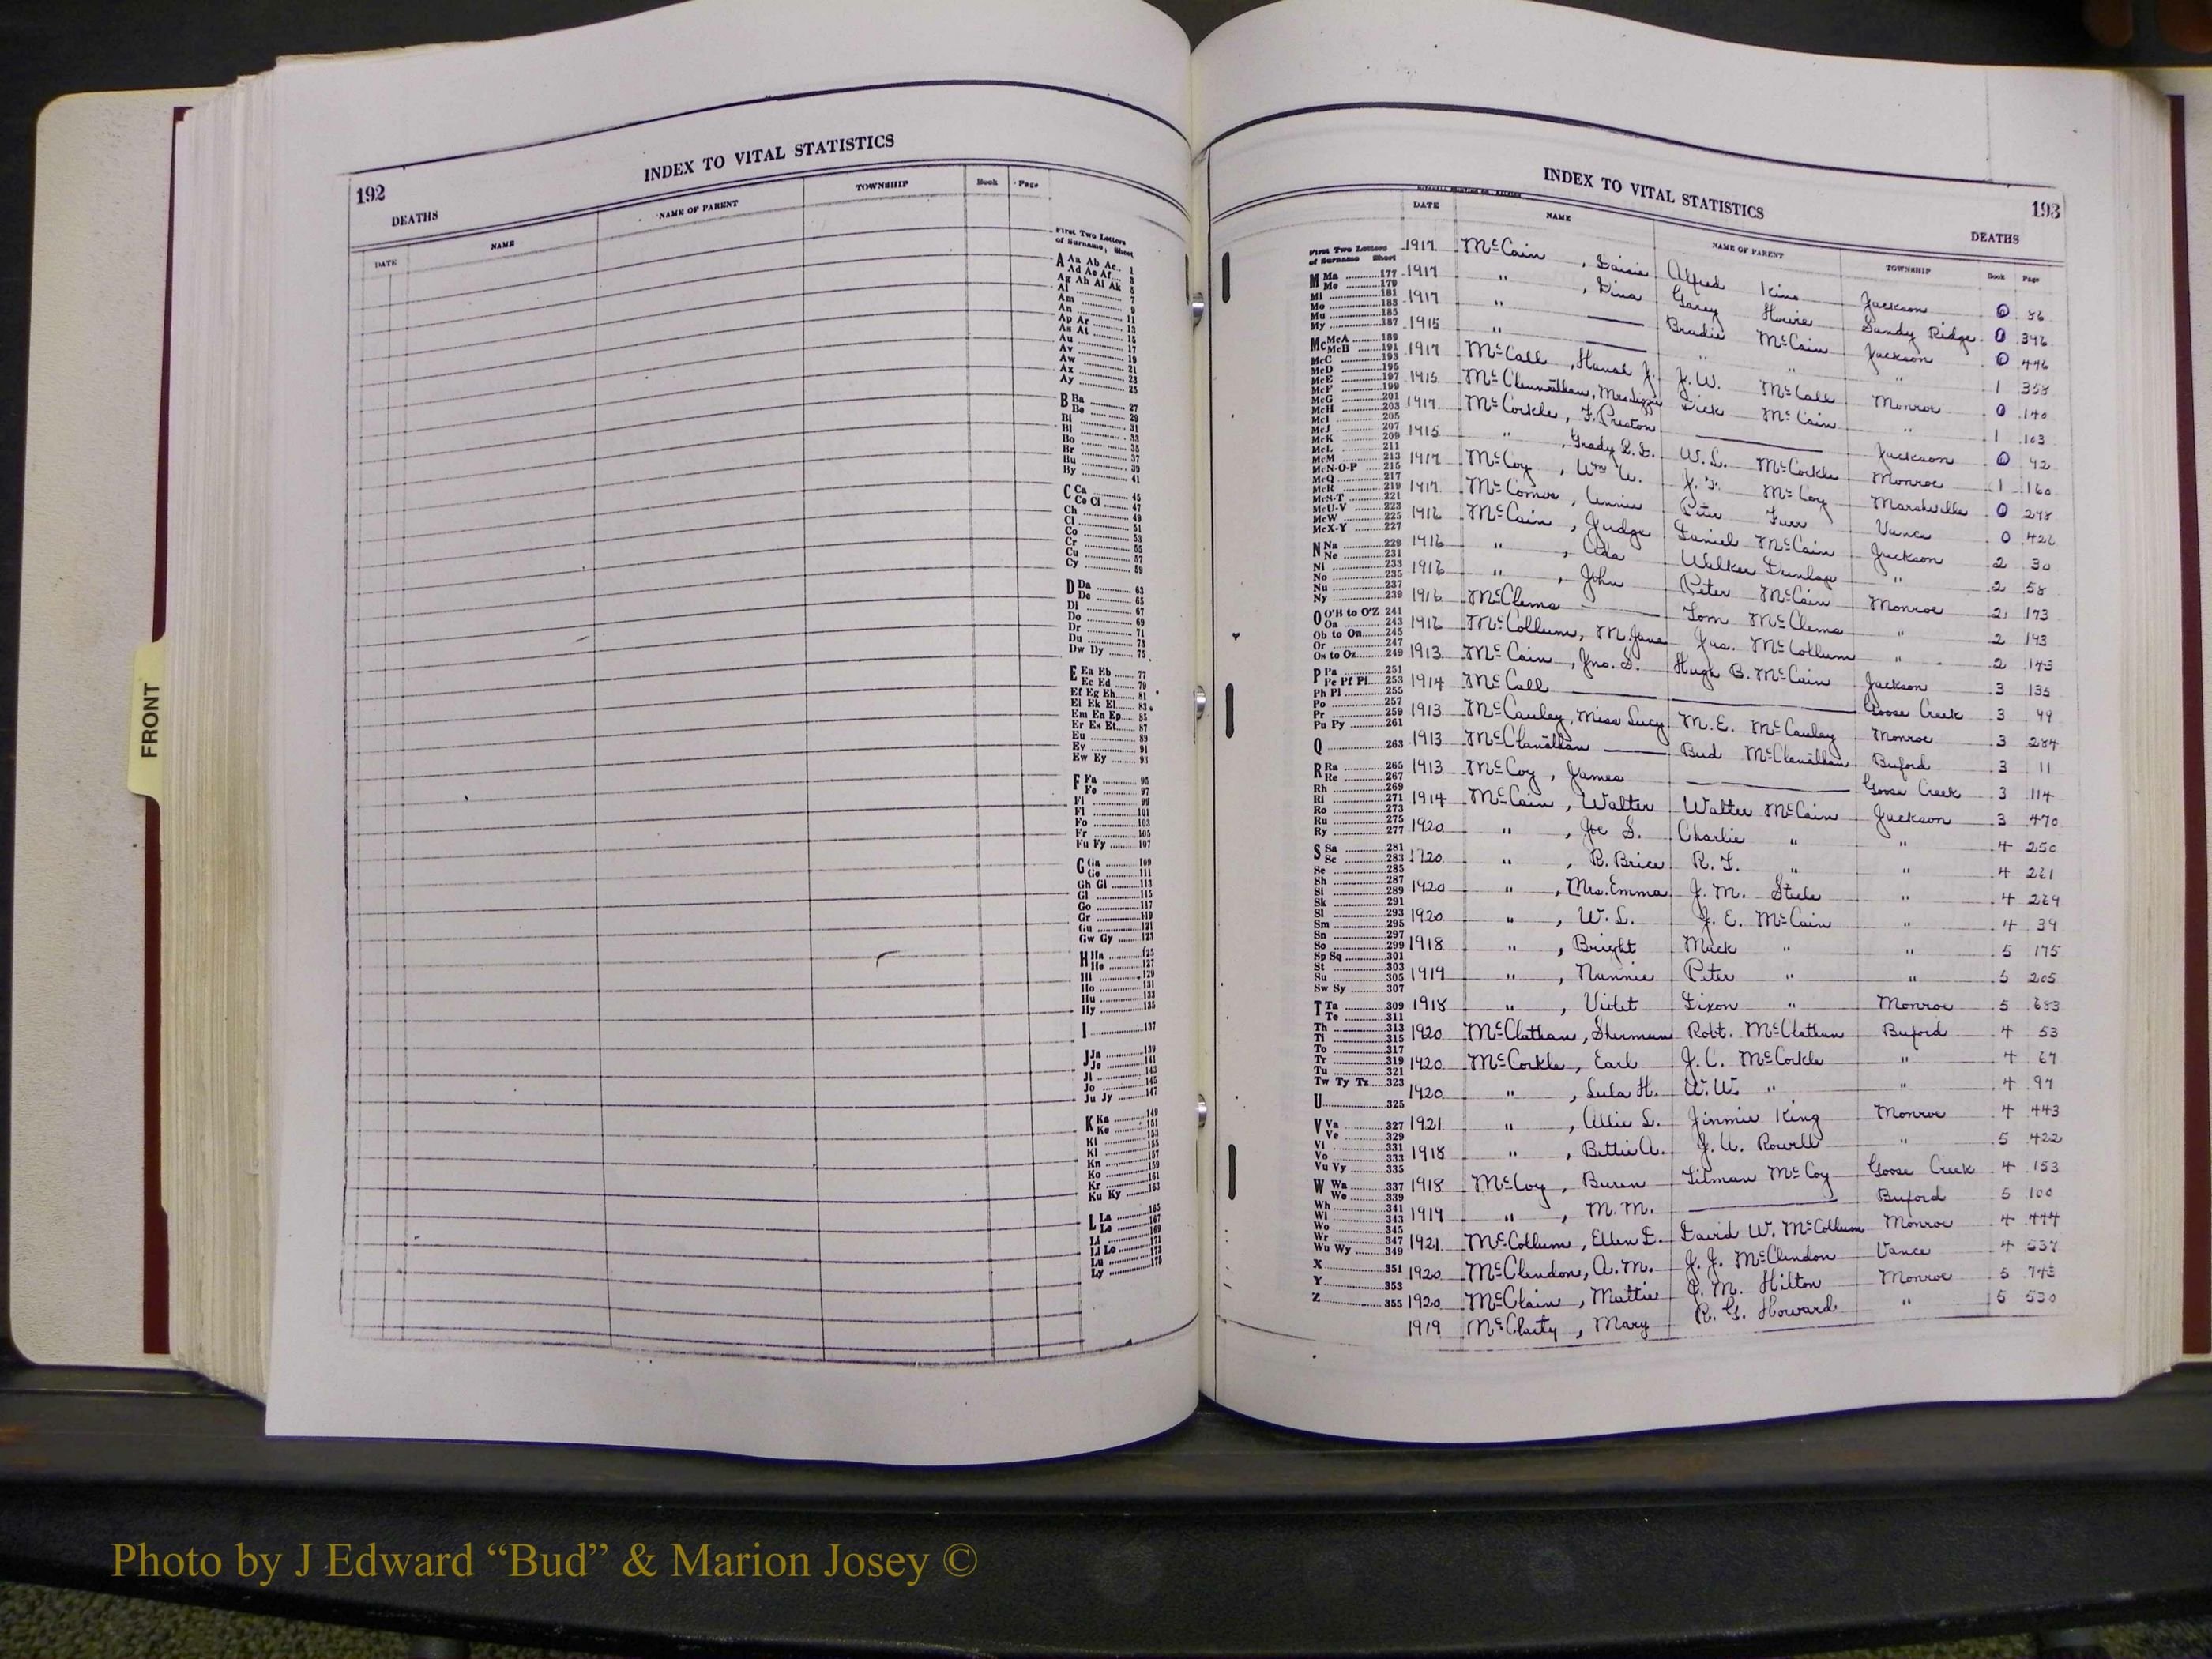 FRONT
192
INDEX TO VITAL STATISTICS
DEATHS
DATE NAME NAME OF PARENT TOWNSHIP Book Page
First Two Letters
of Surname, Sheet
A Aa Ab Ac 1
Ad Ae Af 3
Ag Ah Ai Ak 5
Al 7
Am 9
An 11
Ap Ar 13
As At 15
Au 17
Av 19
Aw 21
Ax 23
Ay 25
B Ba 27
Be 29
Bi 31
Bl 33
Bo 35
Br 37
Bu 39
By 41
C Ca 45
Ce Ci 47
Ch 49
Cl 51
Co 53
Cr 55
Cu 57
Cy 59
D Da 63
De 65
Di 67
Do 69
Dr 71
Du 73
Dw Dy 75
E Ea Eb 77
Ec Ed 79
Ef Eg Eh 81
Ei Ek El 83
Em En Ep 85
Er Es Et 87
Eu 89
Ev 91
Ew Ey 93
F Fa 95
Fe 97
Fi 99
Fl 101
Fo 103
Fr 105
Fu Fy 107
G Ga 109
Ge 111
Gh Gi 113
Gl 115
Go 117
Gr 119
Gu 121
Gw Gy 123
H Ha 125
He 127
Hi 129
Ho 131
Hu 133
Hy 135
I 137
J Ja 139
Je 141
Ji 143
Jo 145
Ju Jy 147
K Ka 149
Ke 151
Ki 153
Kl 155
Kn 157
Ko 159
Kr 161
Ku Ky 163
L La 165
Le 167
Li 169
Ll Lo 171
Lu 173
Ly 175
INDEX TO VITAL STATISTICS
193
DEATHS
DATE NAME NAME OF PARENT TOWNSHIP Book Page
First Two Letters
of Surname Sheet
M Ma 177
Me 179
Mi 181
Mo 183
Mu 185
My 187
Mc McA 189
McB 191
McC 193
McD 195
McE 197
McF 199
McG 201
McH 203
McI 205
McJ 207
McK 209
McL 211
McM 213
McN-O-P 215
McQ 217
McR 219
McS-T 221
McU-V 223
McW 225
McX-Y 227
N Na 229
Ne 231
Ni 233
No 235
Nu 237
Ny 239
O O'B to O'Z 241
Oa 243
Ob to On 245
Or 247
Os to Oz 249
P Pa 251
Pe Pf Pi 253
Ph Pl 255
Po 257
Pr 259
Pu Py 261
Q 263
R Ra 265
Re 267
Rh 269
Ri 271
Ro 273
Ru 275
Ry 277
S Sa 281
Sc 283
Se 285
Sh 287
Si 289
Sk 291
Sl 293
Sm 295
Sn 297
So 299
Sp Sq 301
St 303
Su 305
Sw Sy 307
T Ta 309
Te 311
Th 313
Ti 315
To 317
Tr 319
Tu 321
Tw Ty Tz 323
U 325
V Va 327
Ve 329
Vi 331
Vo 333
Vu Vy 335
W Wa 337
We 339
Wh 341
Wi 343
Wo 345
Wr 347
Wu Wy 349
X 351
Y 353
Z 355
1917 McCain, Daisie Alfred King Jackson 0 86
1917 " , Dina Garey Howie Sandy Ridge 0 346
1917 " Bradie McCain Jackson 0 446
1915 " " " 1 358
1917 McCall, J. J.W. McCall Monroe 0 140
1915 Dick McCain " 1 103
1917 McCorkle, F. Preston Jackson 0 42
1915 " , Grady R.L. W.L. McCorkle Monroe 1 160
1917 McCoy, Wm A. J.F. McCoy Marshville 0 248
1917 Annie Peter Furr Vance 0 426
1916 McCain, Judge Daniel McCain Jackson 2 30
1916 " , Ada Walker Dunlap " 2 58
1916 " , John Peter McCain Monroe 2 173
1916 McClems Tom McClems " 2 193
1916 McCollum, M. Jane Jas. McCollum " 2 143
1913 McCain, Jno. S. Hugh B. McCain Jackson 3 135
1914 McCall Goose Creek 3 49
1913 McCauley, Miss Lucy M.E. McCauley Monroe 3 284
1913 McClanathan Bud McClanathan Buford 3 11
1913 McCoy, James Goose Creek 3 114
1914 McCain, Walter Walter McCain Jackson 3 470
1920 " , Joe S. Charlie " " 4 250
1920 " , R. Brice R.F. " " 4 221
1920 " , Mrs. Emma J.M. Steele " 4 269
1920 " , W.L. J.E. McCain " 4 39
1918 " , Bright Mack " " 5 175
1919 " , Nannie Peter " " 5 205
1918 " , Violet Dixon " Monroe 5 683
1920 McClathan, Sherman Robt. McClathan Buford 4 53
1920 McCorkle, Earl J.C. McCorkle " 4 67
1920 " , Lula H. W.W. " " 4 97
1921 " , Allie L. Jimmie King Monroe 4 443
1918 " , Bettie A. J.A. Rowell " 5 422
1918 McCoy, Buren Tilman McCoy Goose Creek 4 153
1919 " , M.M. Buford 5 100
1921 McCollum, Ellen E. David W. McCollum Monroe 4 444
1920 McClendon, A.M. J.J. McClendon Vance 4 537
1920 McClain, Mattie J.M. Hilton Monroe 5 743
1919 McClarty, Mary R.G. Howard " 5 530
Photo by J Edward “Bud” & Marion Josey ©